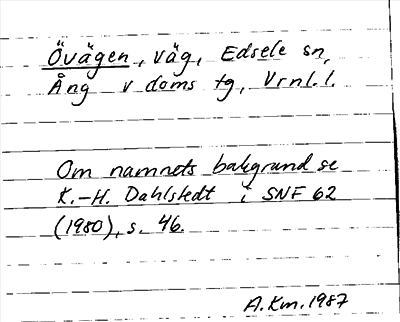 Övägen, väg, Edsele sn,
Ång v doms tg, Vrnl. l.
Om namnets bakgrund se
K.-H. Dahlstedt i SNF 62
(1980), s. 46.
A.Km. 1987